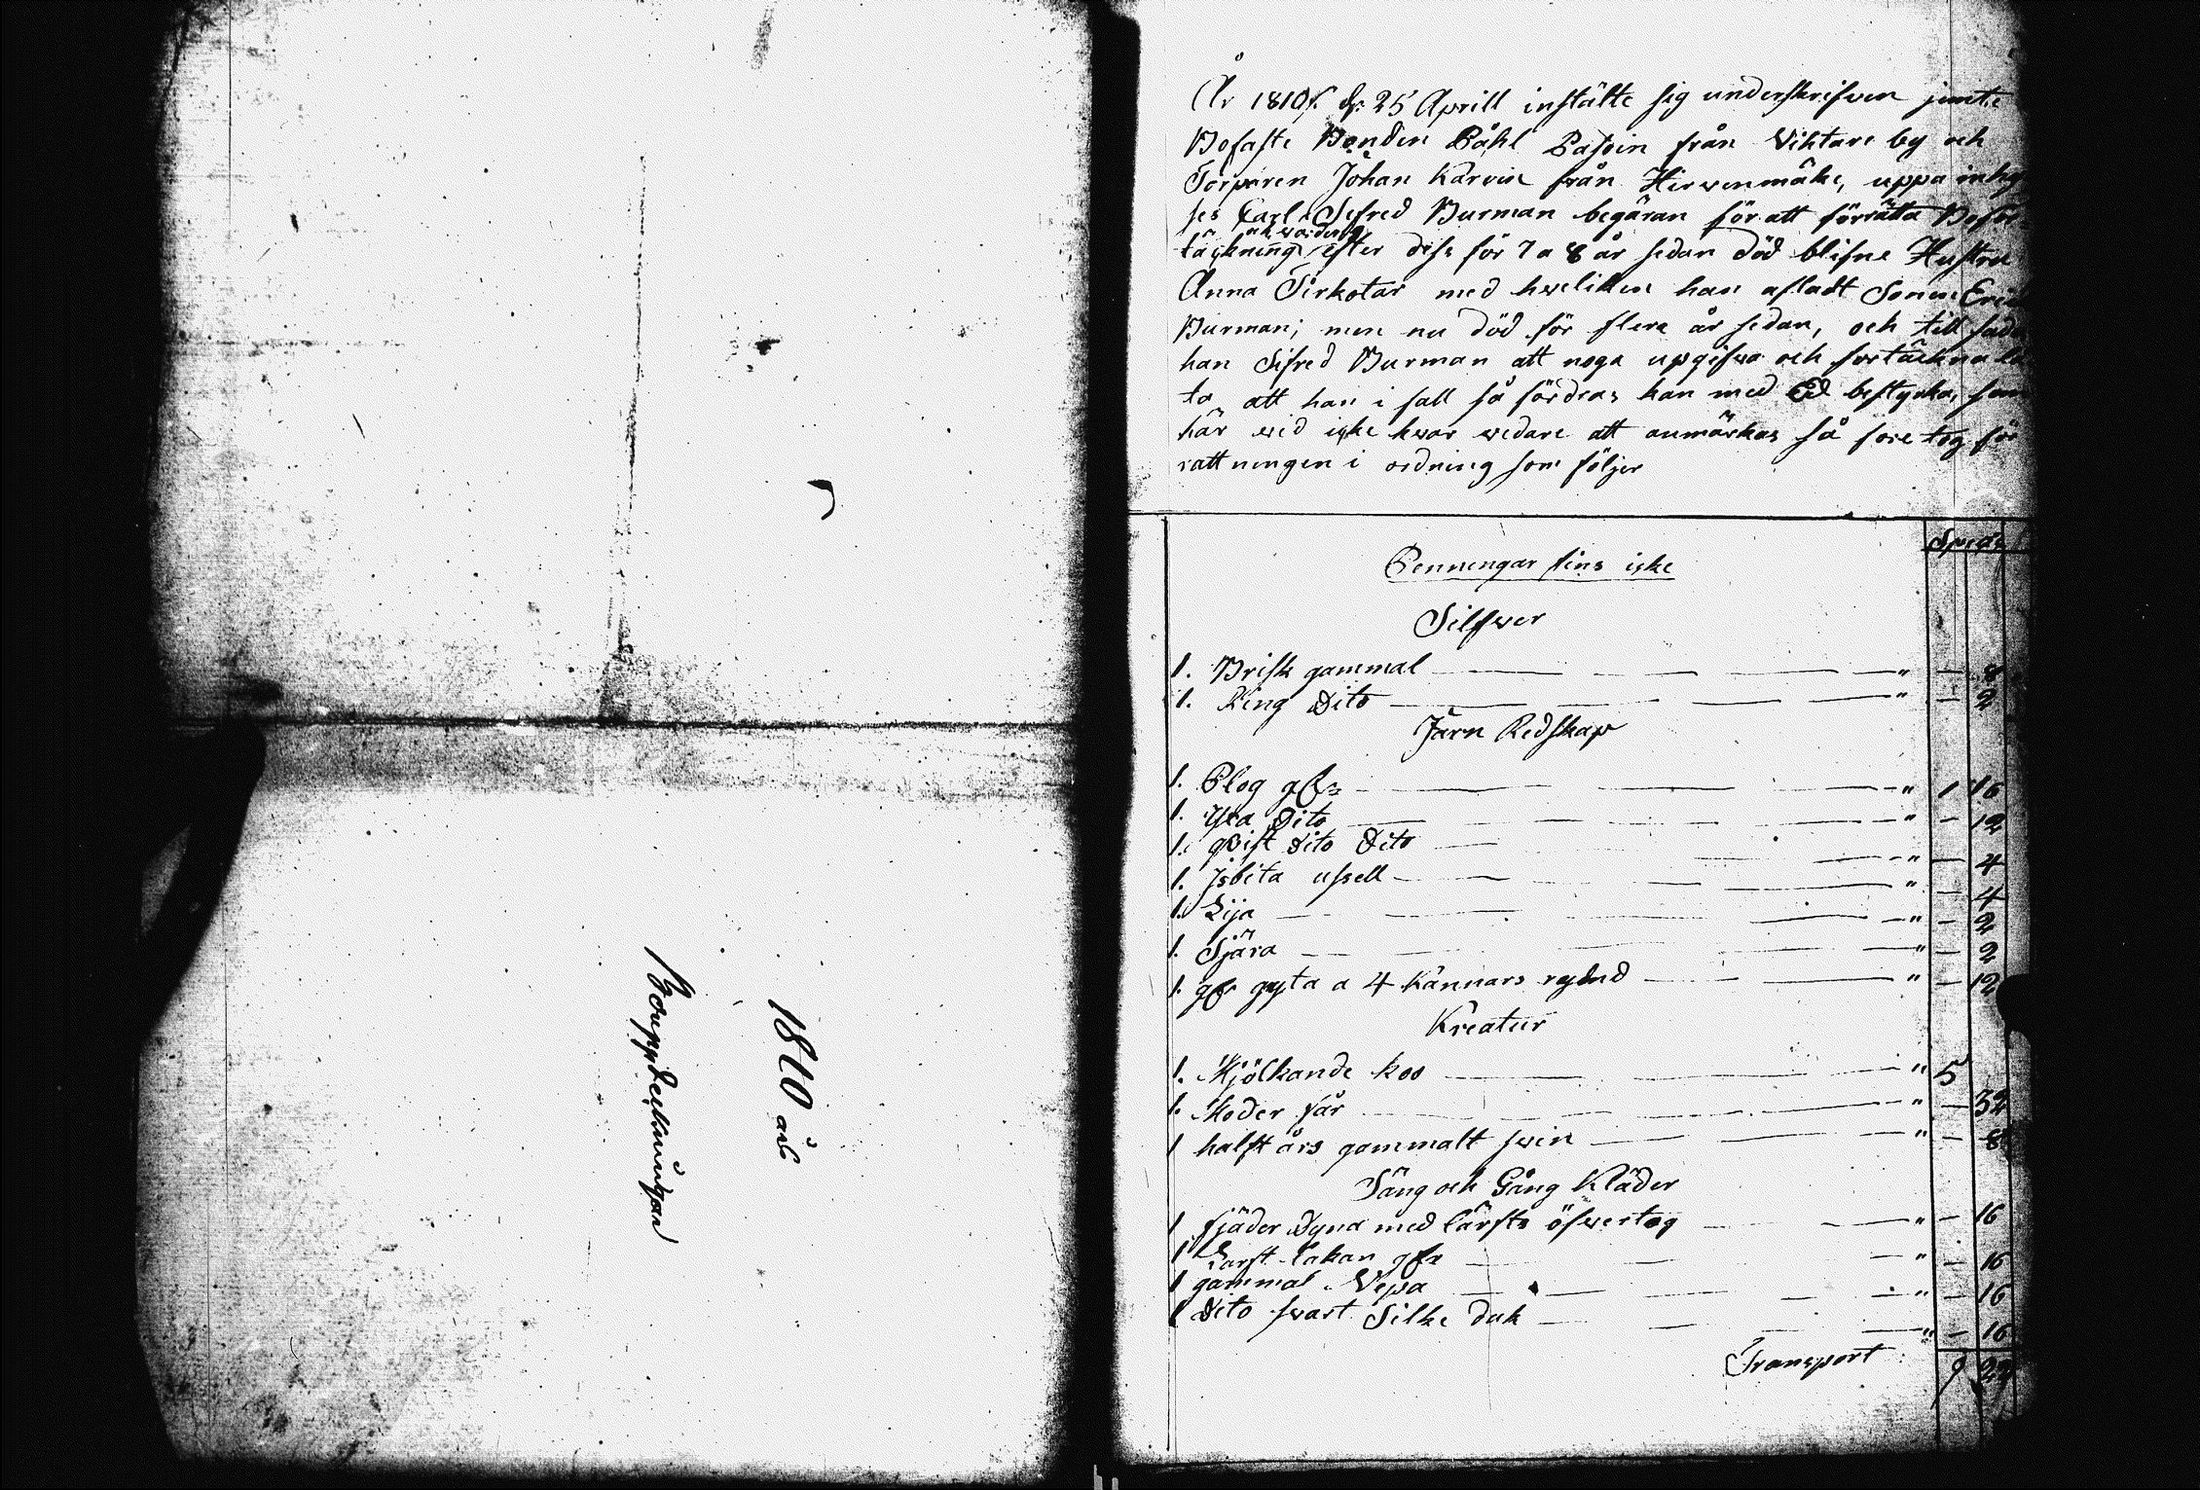 1810 års
Bouppteckningar
År 1810 d. 25 Aprill instälte sig underskrifven jemte
Bofaste Bonden Påhl Pasoin från Vihtari by och
Torparen Johan Karvin från Hirvenmäke, uppa inhy
ses Carl Sefred Burman begäran för att förrätta Boför
täckning efter dess för 7 a 8 år sedan död blifne Hustru
Anna Tirkotar med hvilken han afladt Sonen Eric
Burman; men nu död för flera år sedan, och till sade
han Sifred Burman att noga upgifva och förtäckna lå
ta att han i fall så fördras kan med Ed bestyrka, som
här vid icke hvar vidare att anmärkas så före tog för
rattningen i ordning som följer
Penningar fins icke
Silfver
1. Brisk gammal " — 8
1. Ring Dito " — 2
Järn Redskap
1. Plog " 1 16
1. Yxa Dito " — 12
1. Dito Dito " — 4
1. Isbita ussell " — 4
1. Lija " — 2
1. Sjära " — 2
1. gyta a 4 Kannars " — 12
Kreatur
1. Mjölkande koo " 5
1. Moder får " — 32
1 halft års gammalt svin " — 8
Säng och Gång Kläder
1 fjäder Dyna med lärfts öfvertog " — 16
1 Larft Lakan " — 16
1 gammal Vepa " — 16
1 Dito svart Silke duk " — 16
Transport 9